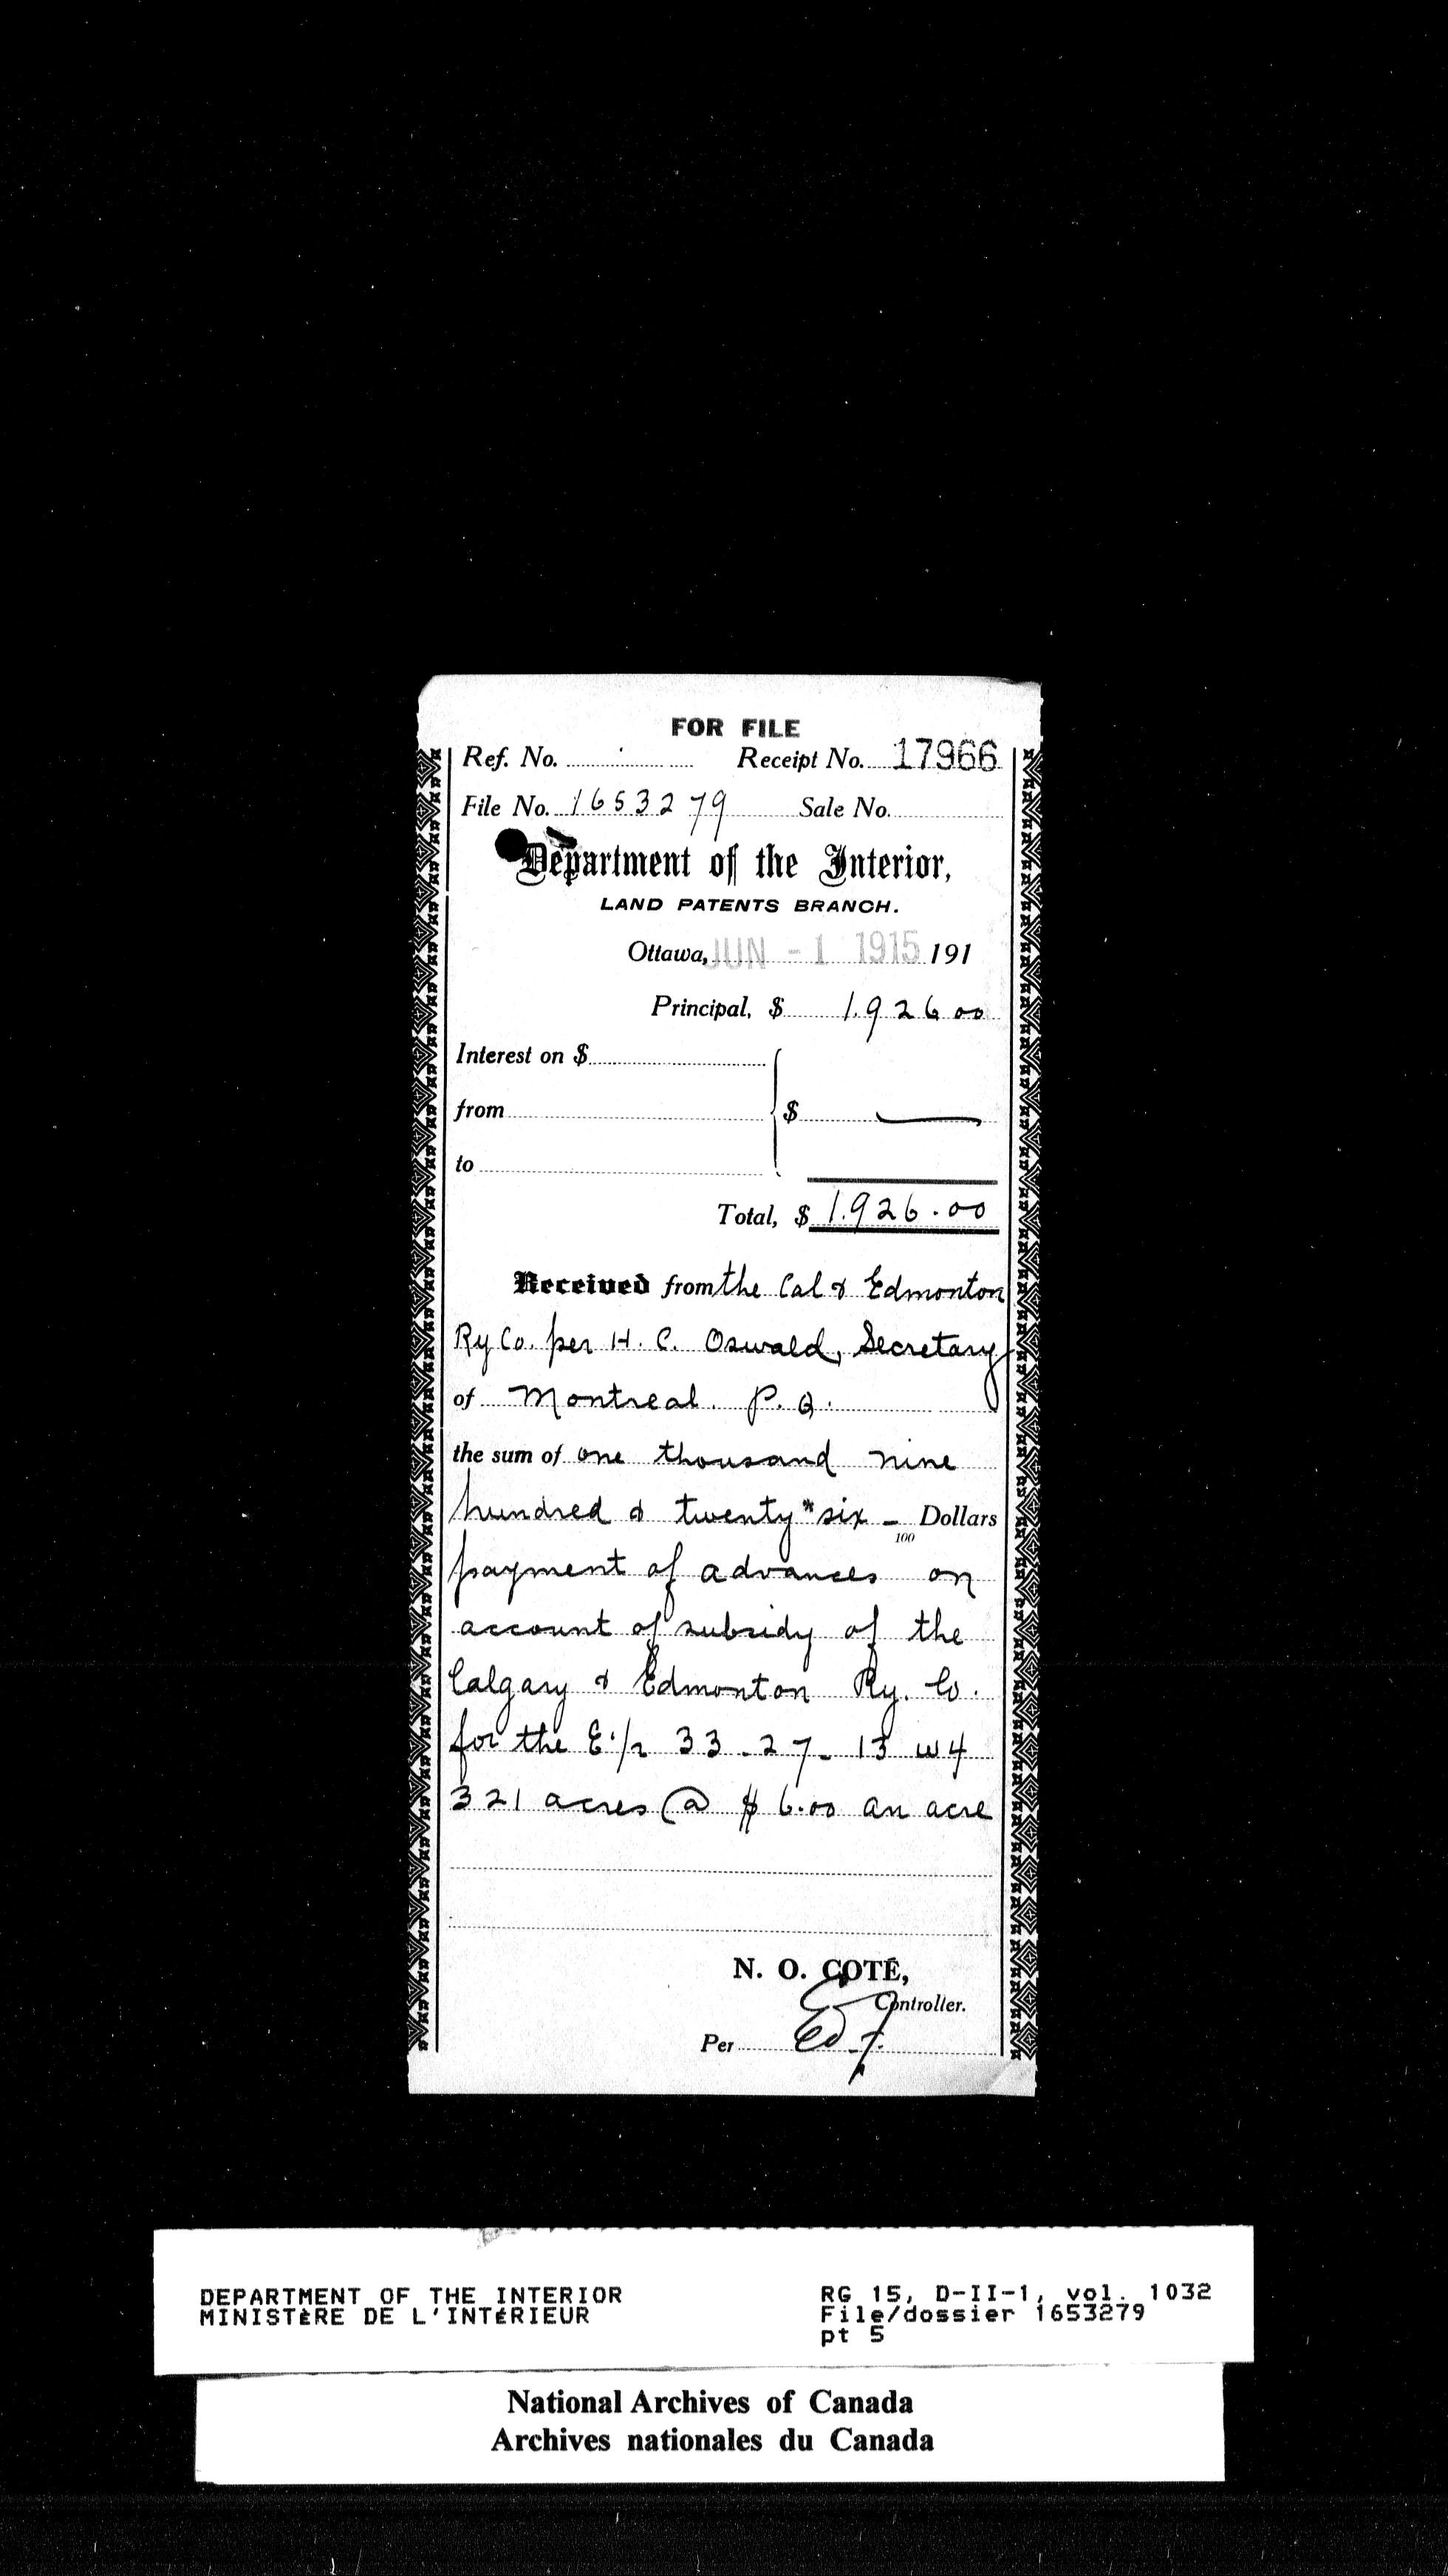 FOR FILE
Ref. No. Receipt No. 17966
File No. 1653279 Sale No.
Department of the Interior,
LAND PATENTS BRANCH.
Ottawa, JUN - 1 1915 191
Principal, $ 1.926 00
Interest on $
from $ —
to
Total, $ 1.926.00
Received from the Cal & Edmonton
Ry Co. per H. C. Oswald, Secretary
of Montreal. P. Q.
the sum of one thousand nine
hundred & twenty * six - Dollars
100
payment of advances on
account of subsidy of the
Calgary & Edmonton Ry. Co.
for the E.1/2 33-27-13 w4
321 acres @ $6.00 an acre
N. O. COTÉ,
Controller.
Per
DEPARTMENT OF THE INTERIOR RG 15, D-II-1, vol. 1032
MINISTÈRE DE L'INTÉRIEUR File/dossier 1653279
pt 5
National Archives of Canada
Archives nationales du Canada